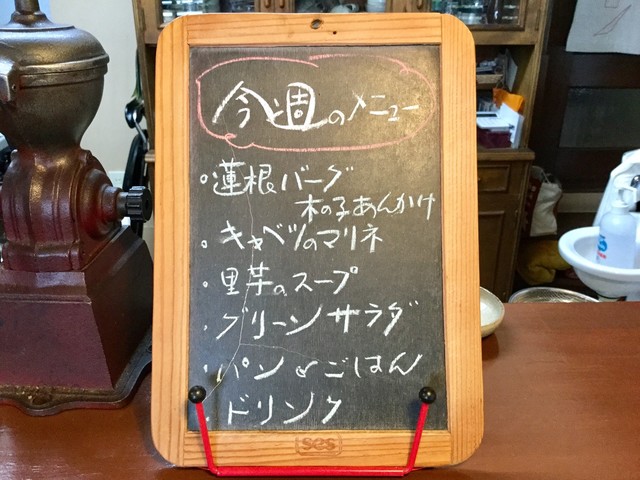 今週のメニュー
・蓮根バーグ
木の子あんかけ
・キャベツのマリネ
・里芋のスープ
・グリーンサラダ
・パン or ごはん
・ドリンク